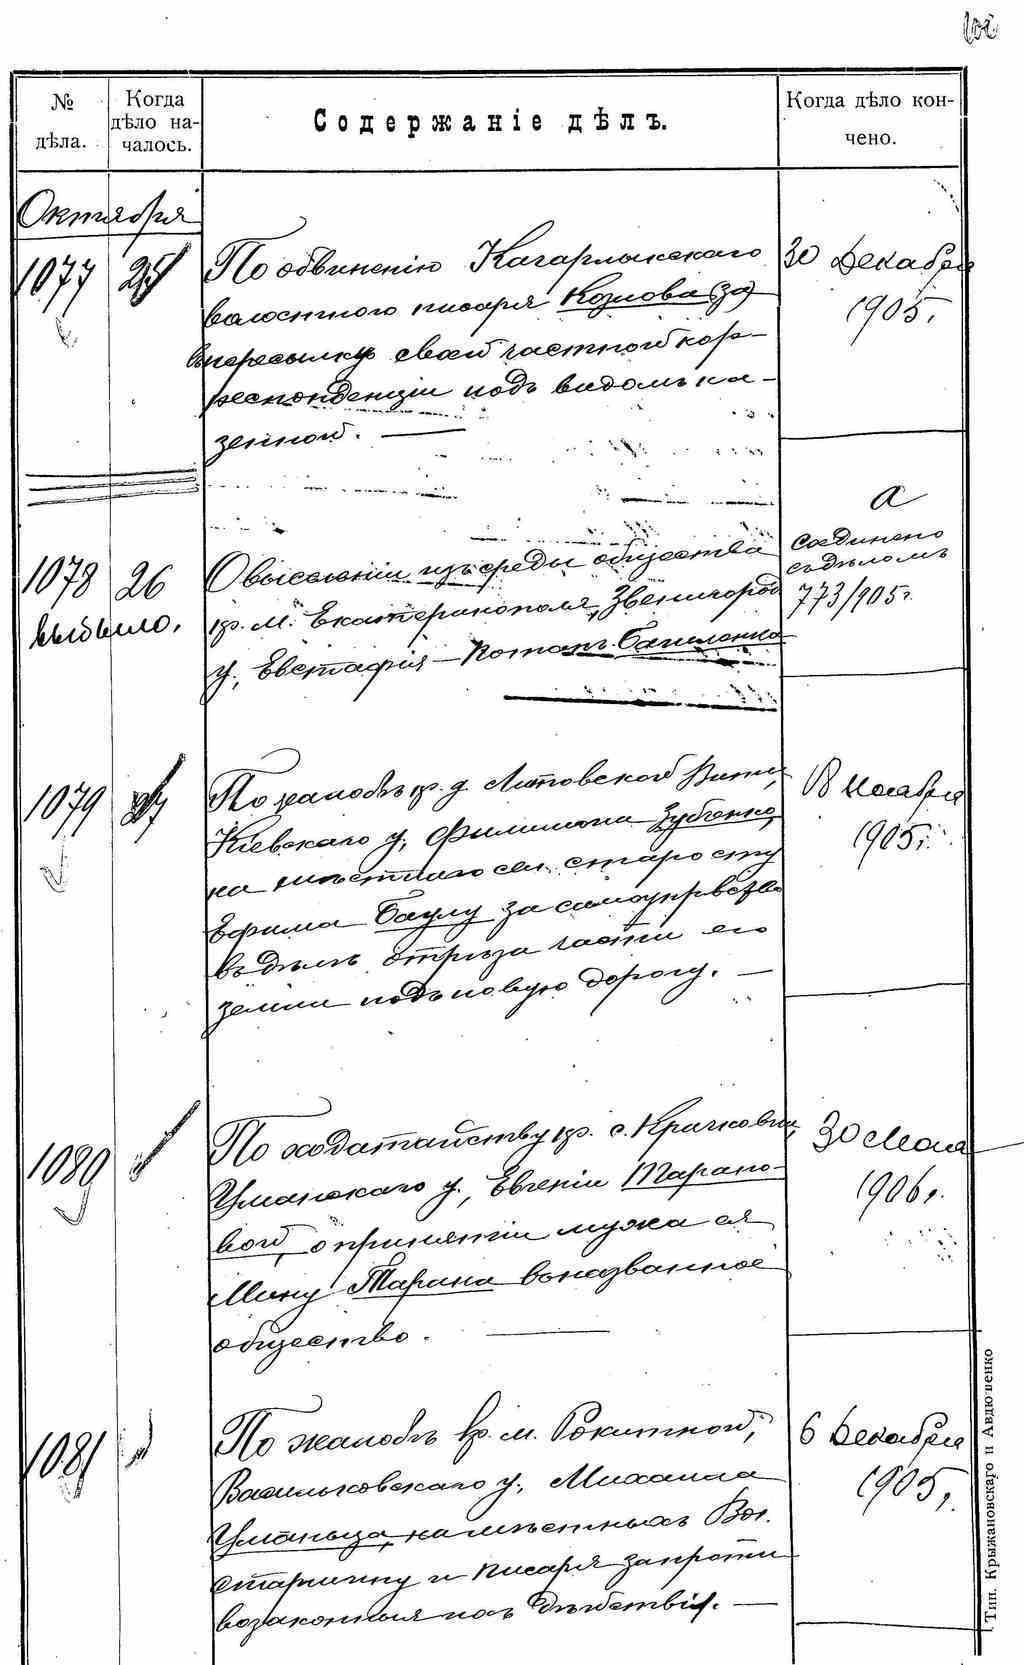 № дѣла.
Когда дѣло на-
чалось.
Содержаніе дѣлъ.
Когда дѣло кон-
чено.
Октября
1077 25
По обвиненію Кагарлыкскаго
волостного писаря Козлова за
пересылку своей частной кор-
респонденціи подъ видомъ ка-
зенной. —
30 Декабря
1905.
1078 26
выбыло.
О выселеніи изъ среды общества
кр. м. Екатеринополя, Звенигород
у., Евстафія
а
соединено
съ дѣломъ
773/905 г.
1079 27
По жалобѣ кр. д. Литовской Виты,
Кіевскаго у., Филимона Зубченко,
на мѣстнаго сел. старосту
Ефима Баулу за самоуправство
въ дѣлѣ отрѣза части его
земли подъ новую дорогу. —
18 Ноября
1905 г.
1080
По ходатайству кр. с. Крачковки,
Уманскаго у., Евгеніи Тарано-
вой, о принятіи мужа ея
Мину Тарана вонгазванное
общество. —
30 Мая
1906 г.
1081
По жалобѣ кр. м. Рокитной,
Васильковскаго у., Михаила
Уманца, на мѣстныхъ Вол.
старшину и писаря за проти
возаконныя ихъ дѣйствія. —
6 Декабря
1905 г.
Тип. Крыжановскаго и Авдюшенко